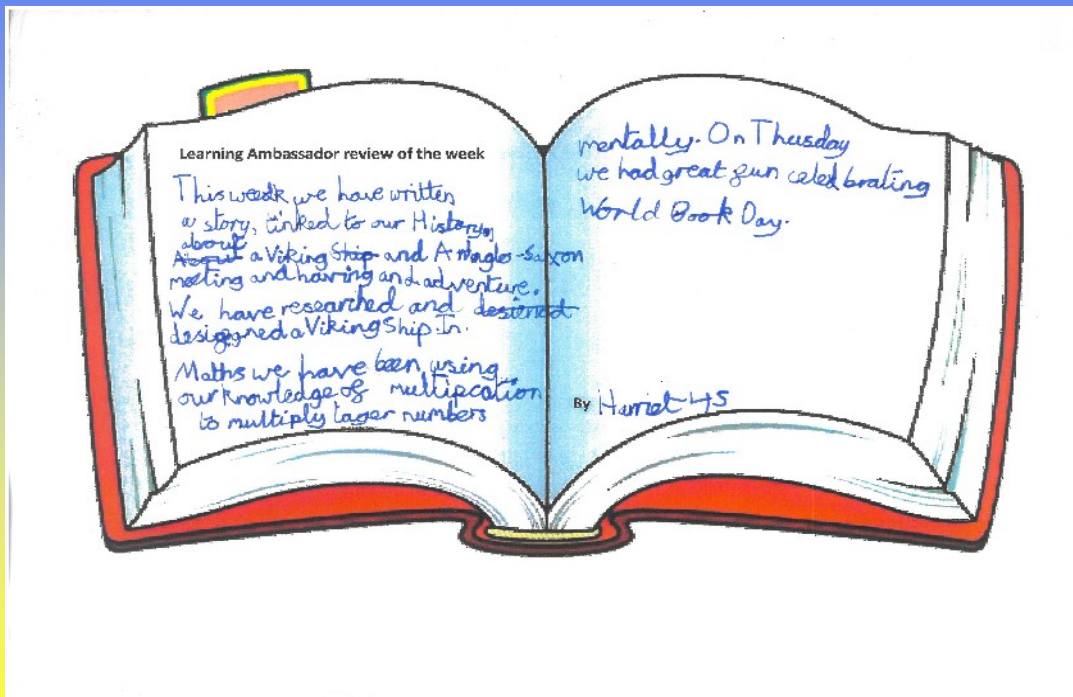 Learning Ambassador review of the week
This week we have written
a story, linked to our History,
about
About a Viking Ship and Anglo-Saxon
meeting and having and adventure.
We have researched and desiened
designed a Viking Ship. In
Maths we have been using
our knowledge of multipcation
to multiply lager numbers
mentally. On Thusday
we had great fun celebrating
World Book Day.
By Harriet 4S